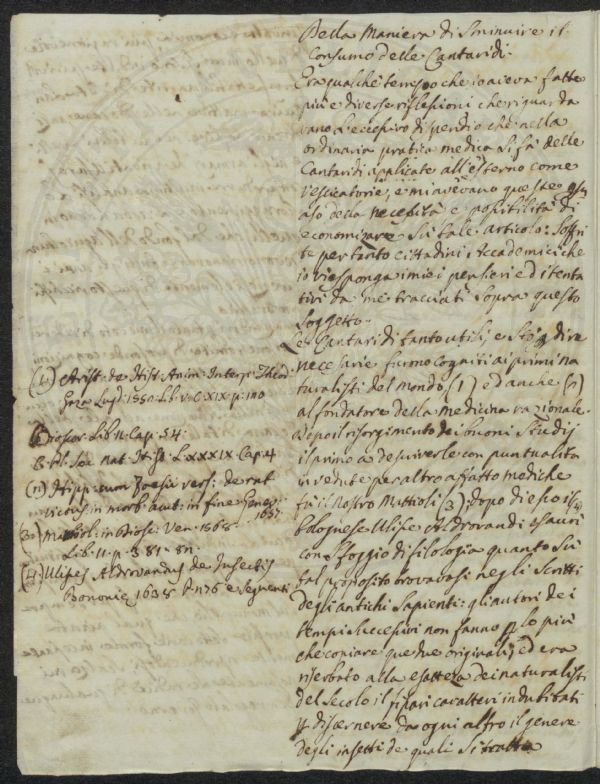 Della Maniera di Sminuire il
Consumo delle Cantaridi.
Era qualche tempo che io aveva fatte
più e diverse riflessioni che riguarda
vano l'eccessivo dispendio che nella
ordinaria pratica medica si fà delle
Cantaridi applicate all'esterno come
vescicatorie, e mi avevano queste
della necessità e possibilità di
economizare su tale articolo: Soffri
te pertanto cittadini Accademici che
io vi esponga i miei pensieri ed i tenta
tivi da me tracciati sopra questo
soggetto.
Le Cantaridi tanto utili, e dire
necessarie furono cognite ai primi na
turalisti del mondo (1) ed anche (2)
al fondatore della medicina razionale.
dopo il risorgimento dei buoni studij
il primo a descriverle con puntualità
in vedute per altro affatto mediche
fù il nostro Mattioli (3); dopo di esso il (4)
bolognese Ulisse Aldrovandi esaurì
con sfoggio di filologia quanto sù
tal proposito trovavasi negli scritti
degli antichi sapienti: gli autori dei
tempi successivi non fanno p lo più
che copiare que due originali; ed era
riserbato alla esattezza dei naturalisti
del secolo il fissar i caratteri indubitati
p discernere da ogni altro il genere
degli insetti de quali si tratta
(1) Arist: de Hist: Anim: Interp: Theod:
Gaza Lugd: 1550. Lib: v: C: XIX. p: 110
Dioscor: Lib: II. Cap: 54.
Nat: Lib: XXIX Cap: 4
(2) Hipp: cum Foesii vers: de rat
victus in morb. acut: in fine Genev:
1657.
(3) Matthiol: in Diosc: Ven: 1568
Lib. II. p.
(4) Ulisses Aldrovandus de Insectis
Bononiæ 1638 p. 476 e seguenti